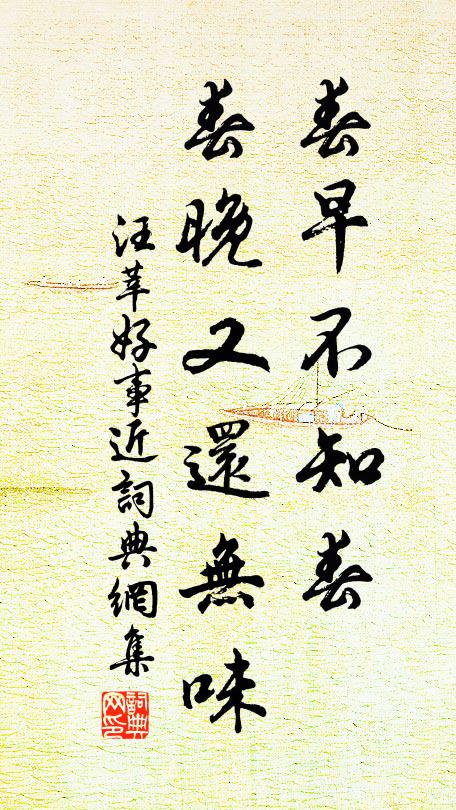 春早不知春
春晚又還無味
汪莘好事近詞典網集
詞典網印